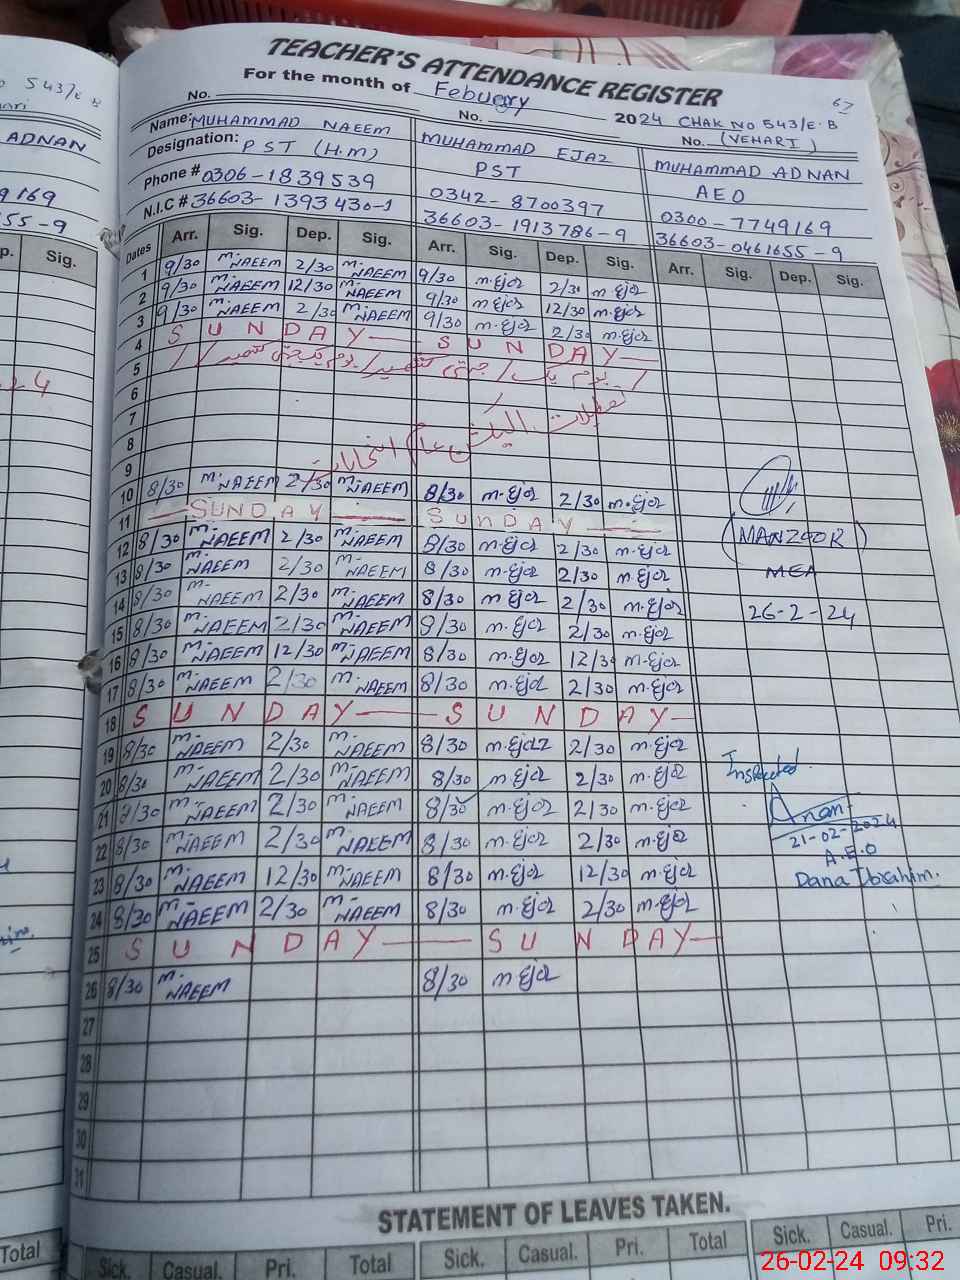 TEACHER'S ATTENDANCE REGISTER
For the month of Febuary 2024 CHAK No. 543/E.B
67
No. No. No. (VEHARI)
Name: MUHAMMAD NAEEM MUHAMMAD EJAZ MUHAMMAD ADNAN
Designation: PST (H.M) PST AEO
Phone # 0306-1839539 0342-8700397 0300-7749169
N.I.C # 36603-1393430-1 36603-1913786-9 36603-0461655-9
Dates Arr. Sig. Dep. Sig. Arr. Sig. Dep. Sig. Arr. Sig. Dep. Sig.
1 9/30 M.NAEEM 2/30 M.NAEEM 9/30 M.Ejaz 2/30 M.Ejaz
2 9/30 M.NAEEM 12/30 M.NAEEM 9/30 M.Ejaz 12/30 M.Ejaz
3 9/30 M.NAEEM 2/30 M.NAEEM 9/30 M.Ejaz 2/30 M.Ejaz
4 SUNDAY SUNDAY
5
6
7
8
9
10 8/30 M.NAEEM 2/30 M.NAEEM 8/30 M.Ejaz 2/30 M.Ejaz
11 SUNDAY SUNDAY
12 8/30 M.NAEEM 2/30 M.NAEEM 8/30 M.Ejaz 2/30 M.Ejaz
(MANZOOR)
13 8/30 M.NAEEM 2/30 M.NAEEM 8/30 M.Ejaz 2/30 M.Ejaz
MEA
14 8/30 M.NAEEM 2/30 M.NAEEM 8/30 M.Ejaz 2/30 M.Ejaz
26-2-24
15 8/30 M.NAEEM 2/30 M.NAEEM 8/30 M.Ejaz 2/30 M.Ejaz
16 8/30 M.NAEEM 12/30 M.NAEEM 8/30 M.Ejaz 12/30 M.Ejaz
17 8/30 M.NAEEM 2/30 M.NAEEM 8/30 M.Ejaz 2/30 M.Ejaz
18 SUNDAY SUNDAY
19 8/30 M.NAEEM 2/30 M.NAEEM 8/30 M.Ejaz 2/30 M.Ejaz
20 8/30 M.NAEEM 2/30 M.NAEEM 8/30 M.Ejaz 2/30 M.Ejaz
21 8/30 M.NAEEM 2/30 M.NAEEM 8/30 M.Ejaz 2/30 M.Ejaz
22 8/30 M.NAEEM 2/30 M.NAEEM 8/30 M.Ejaz 2/30 M.Ejaz
21-02-2024
A.E.O
23 8/30 M.NAEEM 12/30 M.NAEEM 8/30 M.Ejaz 12/30 M.Ejaz
Dana Ibrahim.
24 8/30 M.NAEEM 2/30 M.NAEEM 8/30 M.Ejaz 2/30 M.Ejaz
25 SUNDAY SUNDAY
26 8/30 M.NAEEM 8/30 M.Ejaz
27
28
29
30
31
STATEMENT OF LEAVES TAKEN.
Total Sick. Casual. Pri. Total Sick. Casual. Pri. Total Sick. Casual. Pri.
26-02-24 09:32